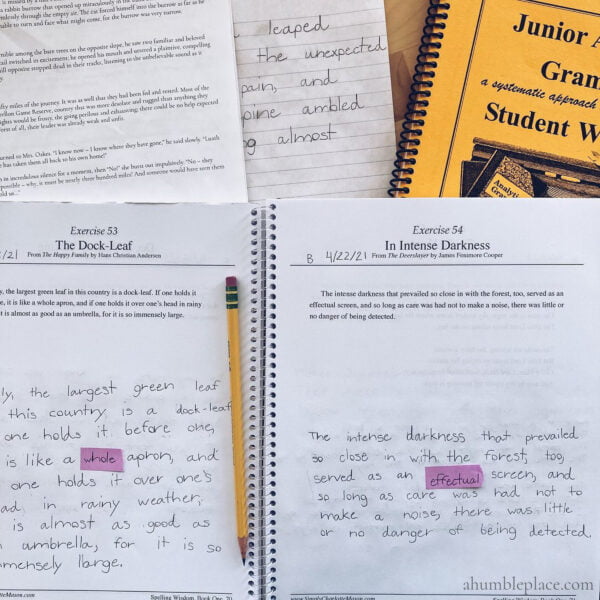 rabbit burrow that opened up miraculously in the
through the empty air. The cat forced himself into the burrow as far as he
to turn and face what might come, for the burrow was very narrow.
among the bare trees on the opposite slope, he saw two familiar and beloved
tail switched in excitement; he opened his mouth and uttered a plaintive, compelling
opposite stopped dead in their tracks, listening to the unbelievable sound as it
fifty miles of the journey. It was as well that they had fed and rested. Most of the
Game Reserve, country that was more desolate and rugged than anything they
nights would be frosty, the going perilous and exhausting; there could be no help expected
of all, their leader was already weak and unfit.
turned to Mrs. Oakes. "I know now – I know where they have gone," he said slowly. "Luath
has taken them all back to his own home!"
in incredulous silence for a moment, then "No!" she burst out impulsively. "No – they
possible – why, it must be nearly three hundred miles! And someone would have seen them
leaped
the unexpected
pain, and
ambled
almost
Junior
Grammar
a systematic approach
Student
Analytical
Grammar
Exercise 53
The Dock-Leaf
/21 From The Happy Family by Hans Christian Andersen
the largest green leaf in this country is a dock-leaf. If one holds it
it is like a whole apron, and if one holds it over one's head in rainy
it is almost as good as an umbrella, for it is so immensely large.
the largest green leaf
this country is a dock-leaf
one holds it before one,
is like a whole apron, and
one holds it over one's
in rainy weather,
is almost as good as
umbrella, for it is so
immensely large.
Spelling Wisdom, Book One, 70
Exercise 54
In Intense Darkness
B 4/22/21 From The Deerslayer by James Fenimore Cooper
The intense darkness that prevailed so close in with the forest, too, served as an
effectual screen, and so long as care was had not to make a noise, there was little or
no danger of being detected.
The intense darkness that prevailed
so close in with the forest, too,
served as an effectual screen, and
so long as care was had not to
make a noise, there was little
or no danger of being detected.
www.SimplyCharlotteMason.com Spelling Wisdom, Book One, 71
ahumbleplace.com